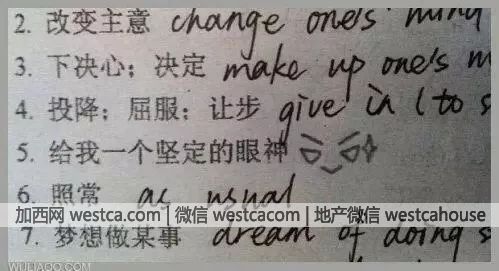 2. 改变主意 change one's mind
3. 下决心；决定 make up one's m
4. 投降；屈服；让步 give in (to s
5. 给我一个坚定的眼神
6. 照常 as usual
加西网 westca.com | 微信 westcacom | 地产微信 westcahouse
7. 梦想做某事 dream of doing s
WULIAOO.COM